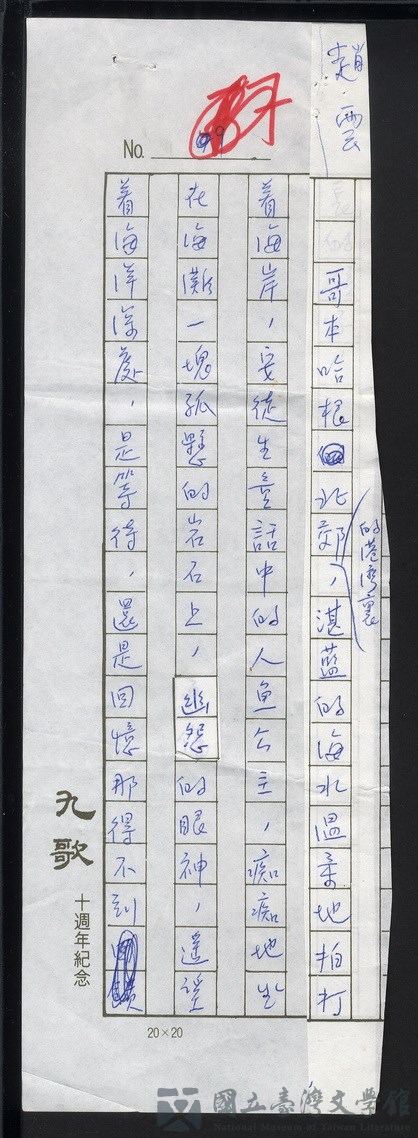 趙雲
哥本哈根北郊的港灣裏，湛藍的海水溫柔地拍打
着海岸，安徒生童話中的人魚公主，痴痴地坐
在海灘一塊孤懸的岩石上，幽怨的眼神，遥望
着海洋深處，是等待，還是回憶那得不到
No. 49
九歌
十週年紀念
20×20
國立臺灣文學館
National Museum of Taiwan Literature